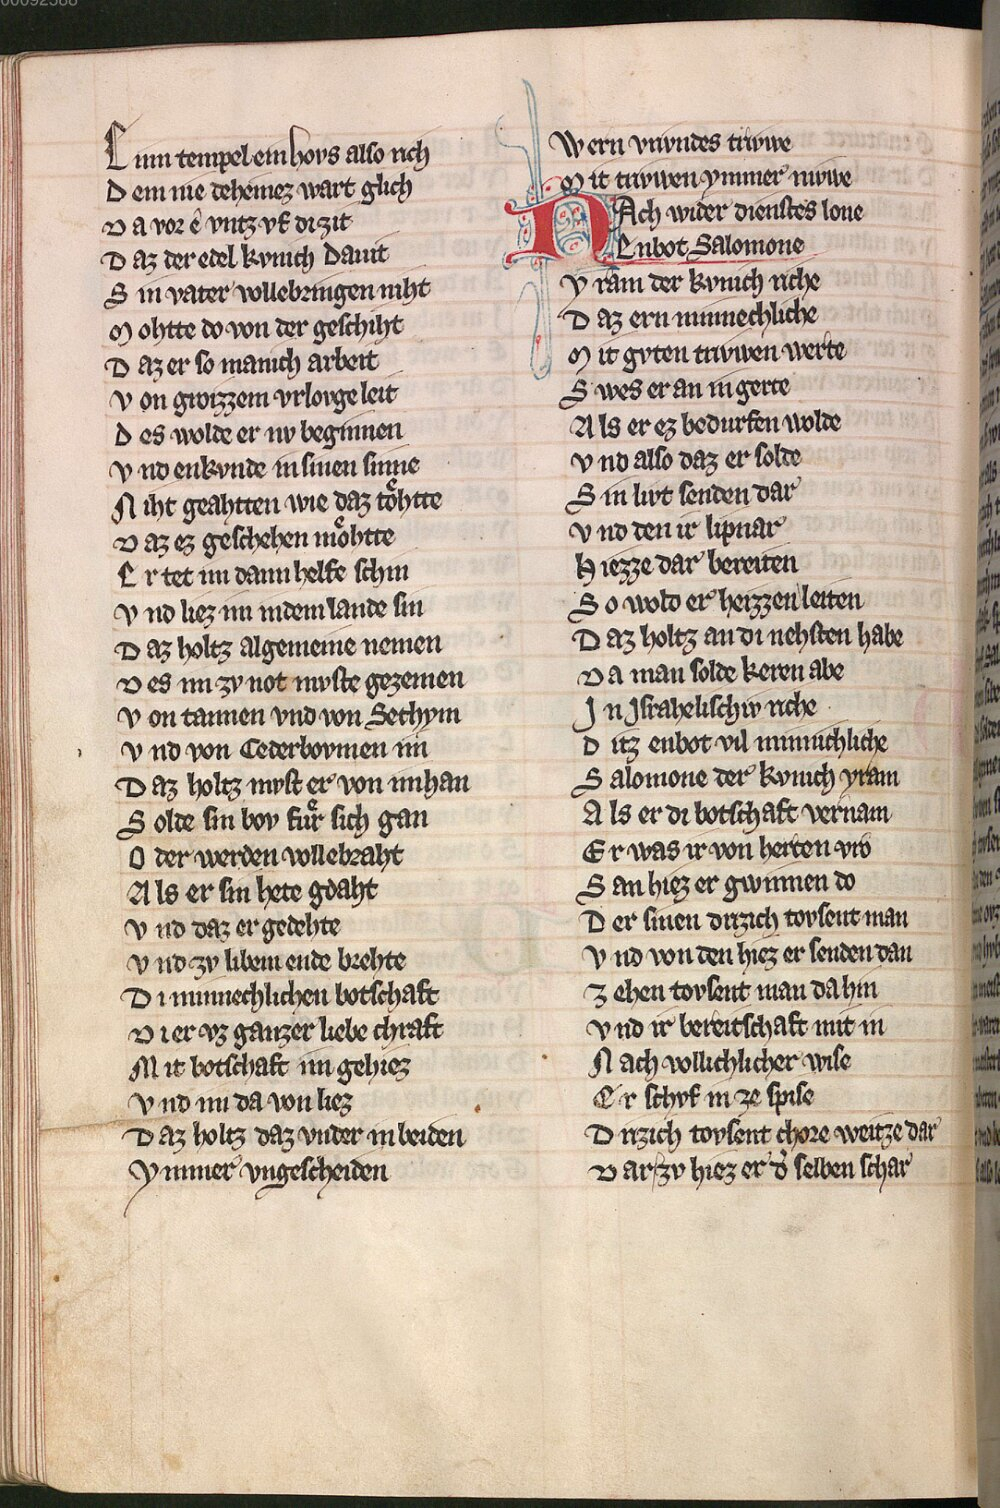 00092588
Einn tempel ein hovs also rich
Dem nie deheinez wart glich
Da vor ê vntz vf dizit
Daz der edel kvnich Dauit
Sin vater vollebringen niht
Mohtte do von der geschiht
Daz er so manich arbeit
Von gwizzem vrlovge leit
Des wolde er nv beginnen
Vnd enkvnde in sinen sinne
Niht geahtten wie daz toͤhtte
Daz ez geschehen moͤhtte
Er tet im dann helfe schin
Vnd liez im in dem lande sin
Daz holtz algemeine nemen
Des im zv not mvste gezemen
Von tannen vnd von Sechym
Vnd von Cederbovmen im
Daz holtz mvst er von im han
Solde sin bov fuͤr sich gan
Oder werden vollebraht
Als er sin hete gdaht
Vnd daz er gedehte
Vnd zv libem ende brehte
Di minnechlichen botschaft
Di er vz ganzer liebe chraft
Mit botschaft im gehiez
Vnd im da von liez
Daz holtz daz vnder in beiden
Ymmer vngescheiden
Wern vrivndes trivwe
Mit trivwen ymmer nivwe
NAch wider dienstes lone
Enbot Salomone
Yram der kvnich riche
Daz ern minnechliche
Mit gvten trivwen werte
Swes er an in gerte
Als er ez bedurfen wolde
Vnd also daz er solde
Sin livt senden dar
Vnd den ir lipnar
Hiezze dar bereiten
So wold er heizzen leiten
Daz holtz an di nehsten habe
Da man solde keren abe
In Israhelischiv riche
Ditz enbot vil minnichliche
Salomone der kvnich yram
Als er di botschaft vernam
Er was ir von herten vro
San hiez er gwinnen do
Der sinen drizich tovsent man
Vnd von den hiez er senden dan
Zehen tovsent man da hin
Vnd ir bereitschaft mit in
Nach vollichlicher wise
Er schvf in ze spise
Drizich tovsent chore weitze dar
Dar zv hiez er d' selben schar